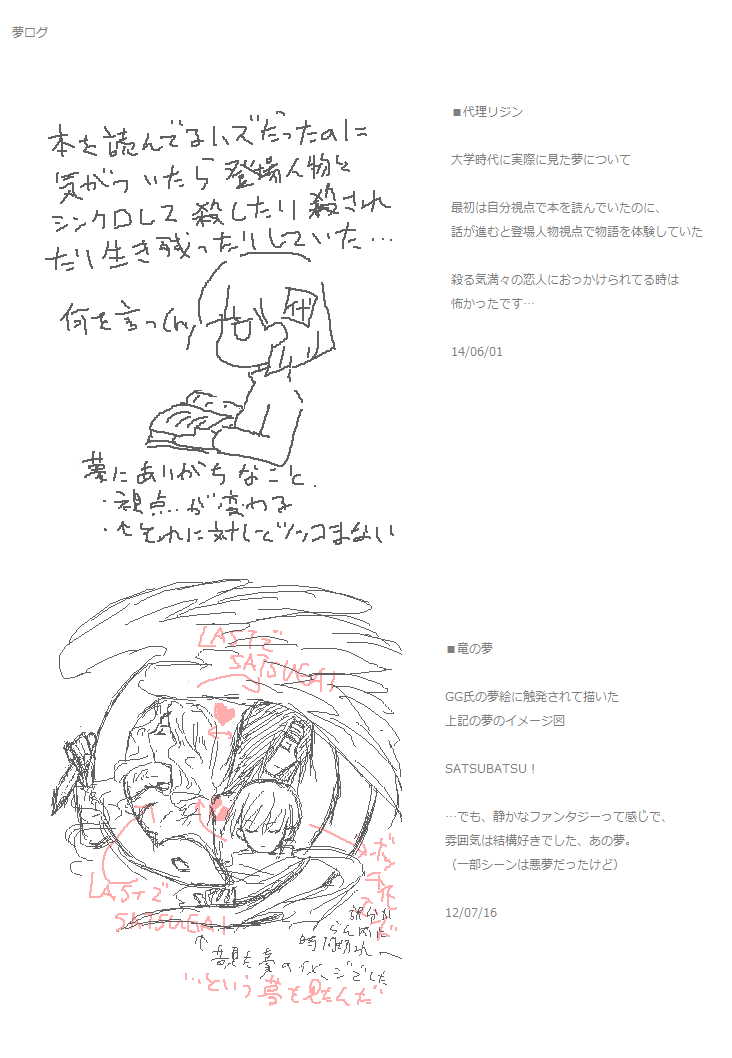 夢ログ
本を読んでるハズだったのに
気がついたら登場人物と
シンクロして殺したり殺され
たり生き残ったりしていた…
代
何を言っ
夢にありがちなこと.
・視点が変わる
・↑それに対してツッコまない
■代理リジン
大学時代に実際に見た夢について
最初は自分視点で本を読んでいたのに、
話が進むと登場人物視点で物語を体験していた
殺る気満々の恋人におっかけられてる時は
怖かったです…
14/06/01
LASTで
SATSUGAI
LASTで
SATSUGAI
時間切れ
↑昔見た夢のイメージでした
…という夢を見たんだ
■竜の夢
GG氏の夢絵に触発されて描いた
上記の夢のイメージ図
SATSUBATSU！
…でも、静かなファンタジーって感じで、
雰囲気は結構好きでした、あの夢。
（一部シーンは悪夢だったけど）
12/07/16